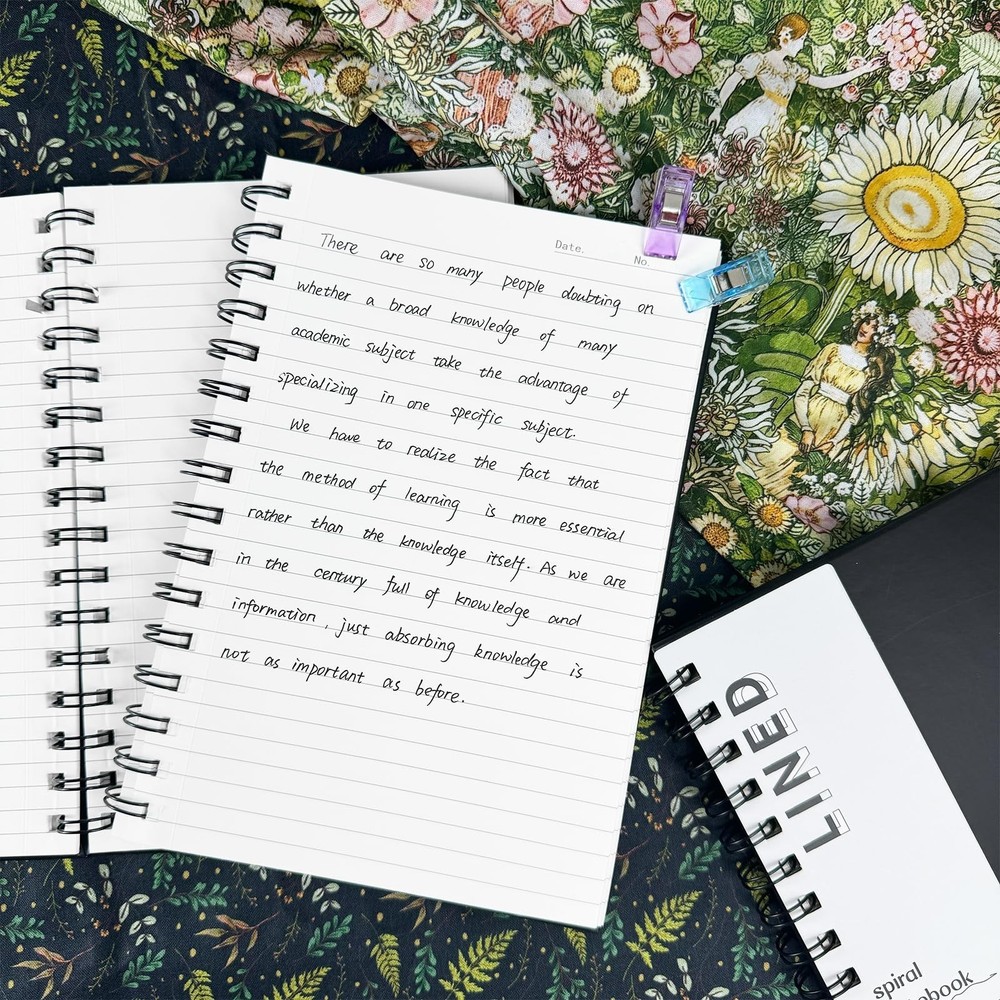 Date.
No.
There are so many people doubting on
whether a broad knowledge of many
academic subject take the advantage of
specializing in one specific subject.
We have to realize the fact that
the method of learning is more essential
rather than the knowledge itself. As we are
in the century full of knowledge and
information, just absorbing knowledge is
not as important as before.
LINED
spiral